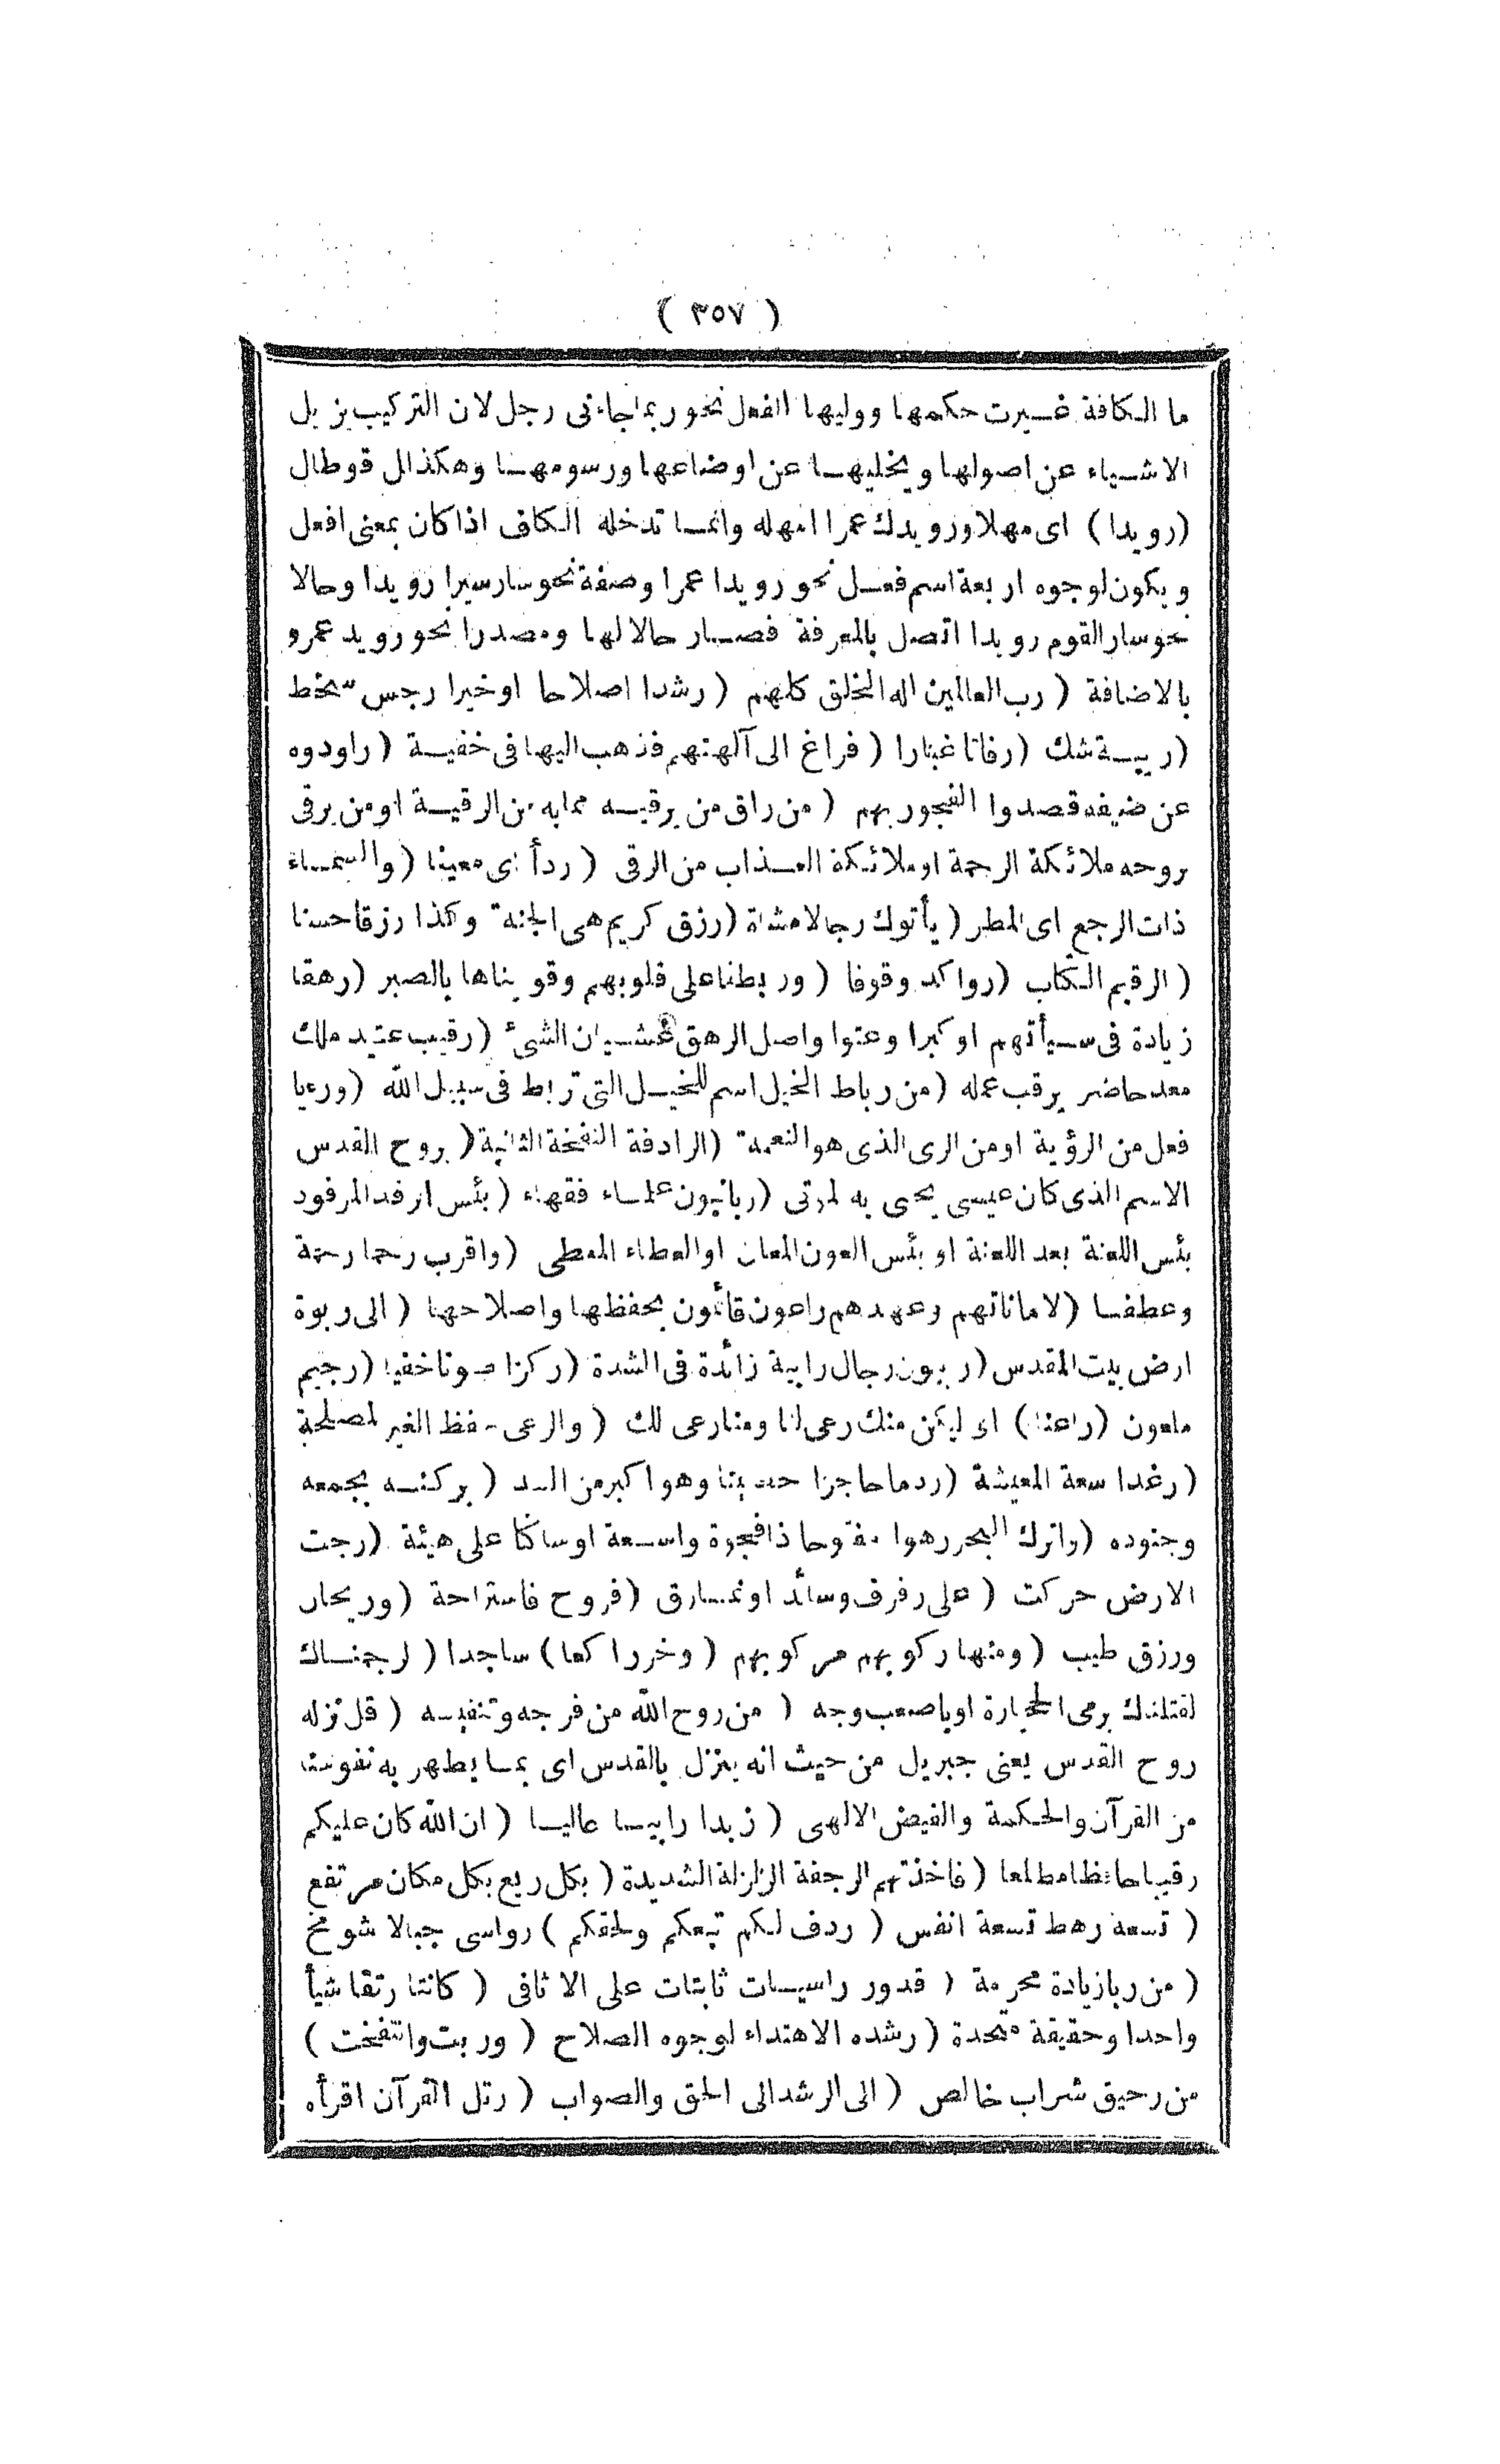 ( ٣٥٧ )
ما الكافة غيرت حكمها ووليها الفعل نحو ربما جاءنى رجل لان التركيب يزيل
الاشياء عن اصولها ويخليها عن اوضاعها ورسومها وهكذا لو قوطال
(رويدا) اى مهلا ورويدك عمرا امهله وانما تدخله الكاف اذا كان بمعنى افعل
ويكون لوجوه اربعة اسم فعل نحو رويدا عمرا وصفة نحو سار سيرا رويدا وحالا
نحو سار القوم رويدا اتصل بالمعرفة فصار حالا لها ومصدرا نحو رويد عمرو
بالاضافة ( رب العالمين اله الخلق كلهم ( رشدا اصلاحا او خيرا رجس سخط
(ريبة شك (رفاتا غبارا ( فراغ الى آلهتهم فذهب اليها فى خفية ( راودوه
عن ضيفه قصدوا الفجور بهم ( من راق من يرقيه مما به من الرقية او من يرقى
بروحه ملائكة الرحمة او ملائكة العذاب من الرقى ( ردأ اى معينا (والسماء
ذات الرجع اى المطر ( يأتوك رجالا مشاة (رزق كريم هى الجنة وكذا رزقا حسنا
( الرقيم الكتاب (رواكد وقوفا ( وربطنا على قلوبهم وقويناها بالصبر (رهقا
زيادة فى سيأتهم او كبرا وعتوا واصل الرهق غشيان الشىء (رقيب عتيد ملك
معد حاضر يرقب عمله (من رباط الخيل اسم للخيل التى تربط فى سبيل الله (ورءيا
فعل من الرؤية او من الرى الذى هو النعمة (الرادفة النفخة الثانية ( بروح القدس
الاسم الذى كان عيسى يحيى به الموتى (ربانيون علماء فقهاء ( بئس الرفد المرفود
بئس اللعنة بعد اللعنة او بئس العون المعان او العطاء المعطى (واقرب رحما رحمة
وعطفا (لاماناتهم وعهدهم راعون قائمون بحفظها واصلاحها ( الى ربوة
ارض بيت المقدس (ربيون رجال رابية زائدة فى الشدة (ركزا صوتا خفيا (رجيم
ملعون (راعنا) اى ليكن منك رعى لنا ومنا رعى لك ( والرعى حفظ الغير لمصلحة
( رغدا سعة المعيشة (ردما حاجزا حصينا وهو اكبر من السد ( بركنه بجمعه
وجنوده (واترك البحر رهوا مفتوحا ذا فجوة واسعة او ساكنا على هيئة (رجت
الارض حركت ( على رفرف وسائد او نمارق (فروح فاستراحة (وريحان
ورزق طيب ( ومنها ركوبهم مركوبهم ( وخر راكعا) ساجدا ( لرجمناك
لقتلناك برمى الحجارة او باصعب وجه ( من روح الله من فرجه وتنفيسه ( قل نزله
روح القدس يعنى جبريل من حيث انه ينزل بالقدس اى بما يطهر به نفوسنا
من القرآن والحكمة والفيض الالهى ( زبدا رابيا عاليا ( ان الله كان عليكم
رقيبا حافظا مطلعا (فاخذتهم الرجفة الزلزلة الشديدة ( بكل ريع بكل مكان مرتفع
( تسعة رهط تسعة انفس ( ردف لكم تبعكم ولحقكم ) رواسى جبالا شوامخ
( من ربا زيادة محرمة ( قدور راسيات ثابتات على الاثافى ( كانتا رتقا شيأ
واحدا وحقيقة متحدة ( رشده الاهتداء لوجوه الصلاح ( وربت وانتفخت )
من رحيق شراب خالص ( الى الرشد الى الحق والصواب ( رتل القرآن اقرأه